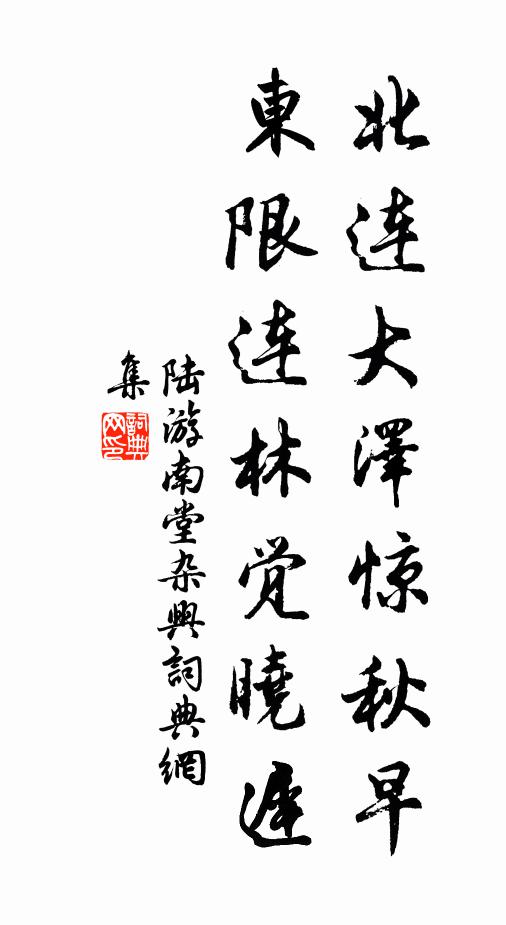 北连大澤惊秋早
東限连林觉曉遲
陆游南堂杂興詞典網
集
詞典网印